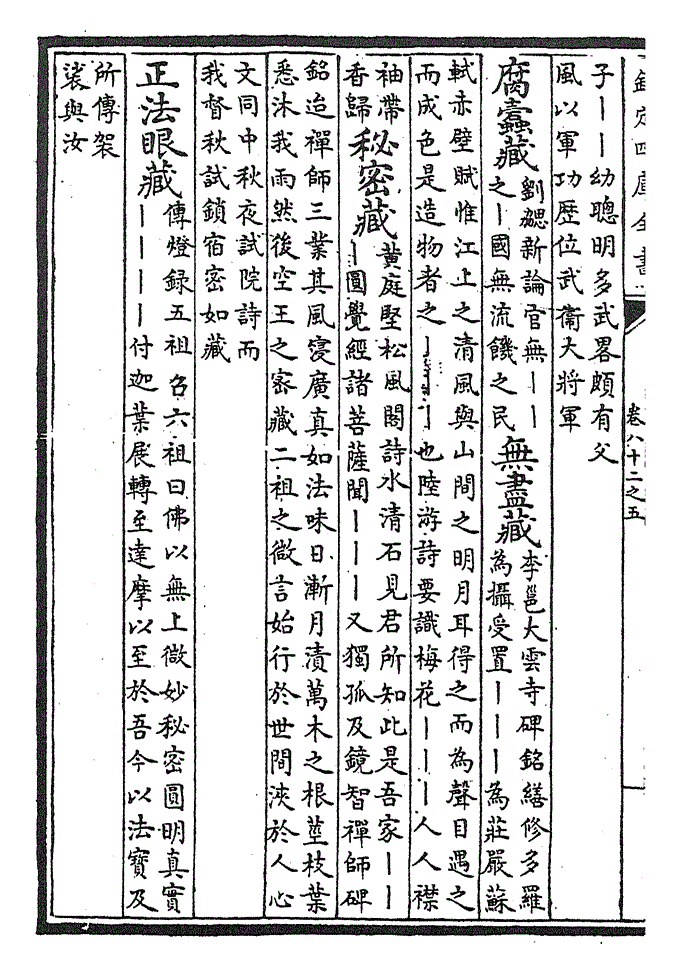 欽定四庫全書
卷八十二之五
子一一幼聰明多武畧頗有父
風以軍功歷位武衞大將軍
腐蠹藏
劉勰新論官無一一
之一國無流餓之民
無盡藏
李邕大雲寺碑銘繕修多羅
為攝受置一一一為莊嚴蘇
軾赤壁賦惟江上之清風與山間之明月耳得之而為聲目遇之
而成色是造物者之一一一也陸游詩要識梅花一一一人人襟
袖帶
香歸
秘密藏
黄庭堅松風閣詩水清石見君所知此是吾家一一
一圓覺經諸菩薩聞一一一又獨孤及鏡智禪師碑
銘迨禪師三業其風寖廣真如法味日漸月漬萬木之根莖枝葉
悉沐我雨然後空王之密藏二祖之微言始行於世間浹於人心
文同中秋夜試院詩而
我督秋試鎖宿密如藏
正法眼藏
傳燈録五祖召六祖曰佛以無上微妙秘密圓明真實
一一一一付迦葉展轉至達摩以至於吾今以法寶及
所傳袈
裟與汝